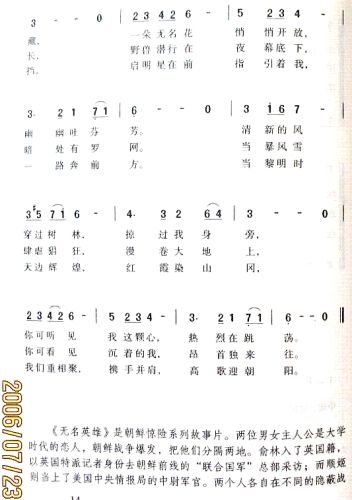 3 - - 0 2 3 4 2 6 - - 0 5 2 3 4
藏, 一朵无名花 悄悄开放,
长, 野兽潜行在 夜幕底下,
挡。 启明星在前 指引着我,
3· 2 1 7 1 6 - - 0 3 1 6 7
幽幽吐芬芳。 清新的风
暗处有罗网。 当暴风雪
一路奔前方。 当黎明时
3 #5 7 1 6 4· 3 2 6 4 3 - - 0
穿过树林, 掠过我身旁,
肆虐猖狂, 漫卷大地上,
天边辉煌, 红霞染山冈,
2 3 4 2 6 - 5 2 3 4 3 - 3· 2 1 7 1 6 - - 0
你可听见 我这颗心, 热烈在跳荡。
你可看见 沉着的我, 昂首独来往。
我们重相聚, 携手并肩, 高歌迎朝阳。
《无名英雄》是朝鲜惊险系列故事片。两位男女主人公是大学
时代的恋人,朝鲜战争爆发,把他们分隔两地。俞林入了英国籍,
以英国特派记者身份去朝鲜前线的“联合国军”总部采访;而顺姬
则当上了美国中央情报局的中尉军官。两个人各自在不同的隐蔽战
14
2006/07/23